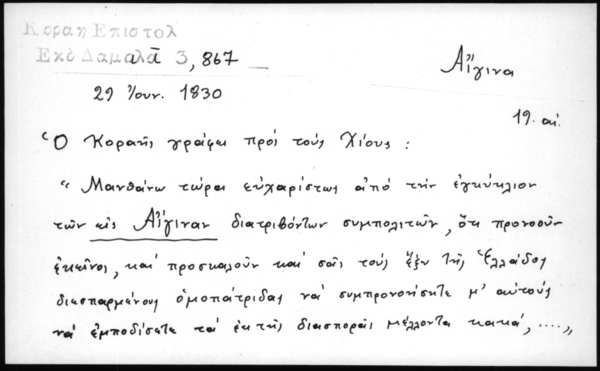 Κοραη Επιστολ
Εκδ Δαμαλᾶ 3, 867
Αἴγινα
29 Ἰουν. 1830
19. αἰ.
Ὁ Κοραῆς γράφει πρὸς τοὺς Χίους:
"Μανθάνω τώρα εὐχαρίστως ἀπό τήν ἐγκύκλιον
τῶν εἰς Αἴγιναν διατριβόντων συμπολιτῶν, ὅτι προνοοῦν
ἐκεῖνοι, καί προσκαλοῦν καί σᾶς τούς ἔξω τῆς Ἑλλάδος
διασπαρμένους ὁμοπάτριδας νά συμπρονοήσητε μ' αὐτούς
νά ἐμποδίσετε τά ἐκ τῆς διασπορᾶς μέλλοντα κακά, ....."